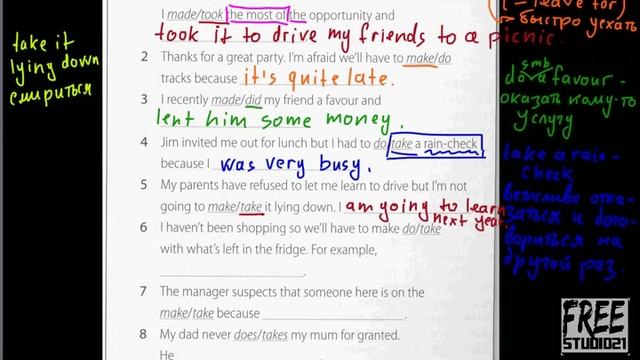 I made/took the most of the opportunity and
took it to drive my friends to a picnic.
2 Thanks for a great party. I'm afraid we'll have to make/do
tracks because it's quite late.
3 I recently made/did my friend a favour and
lent him some money.
4 Jim invited me out for lunch but I had to do/take a rain-check
because I was very busy.
5 My parents have refused to let me learn to drive but I'm not
going to make/take it lying down. I am going to learn
next year.
6 I haven't been shopping so we'll have to make do/take
with what's left in the fridge. For example,
7 The manager suspects that someone here is on the
make/take because
8 My dad never does/takes my mum for granted.
He
take it
lying down
смириться
(= leave for)
- быстро уехать
smb
do a favour -
оказать кому-то
услугу
take a rain-
check
вежливо отка-
заться и дого-
вориться на
другой раз.
FREE
STUDIO21